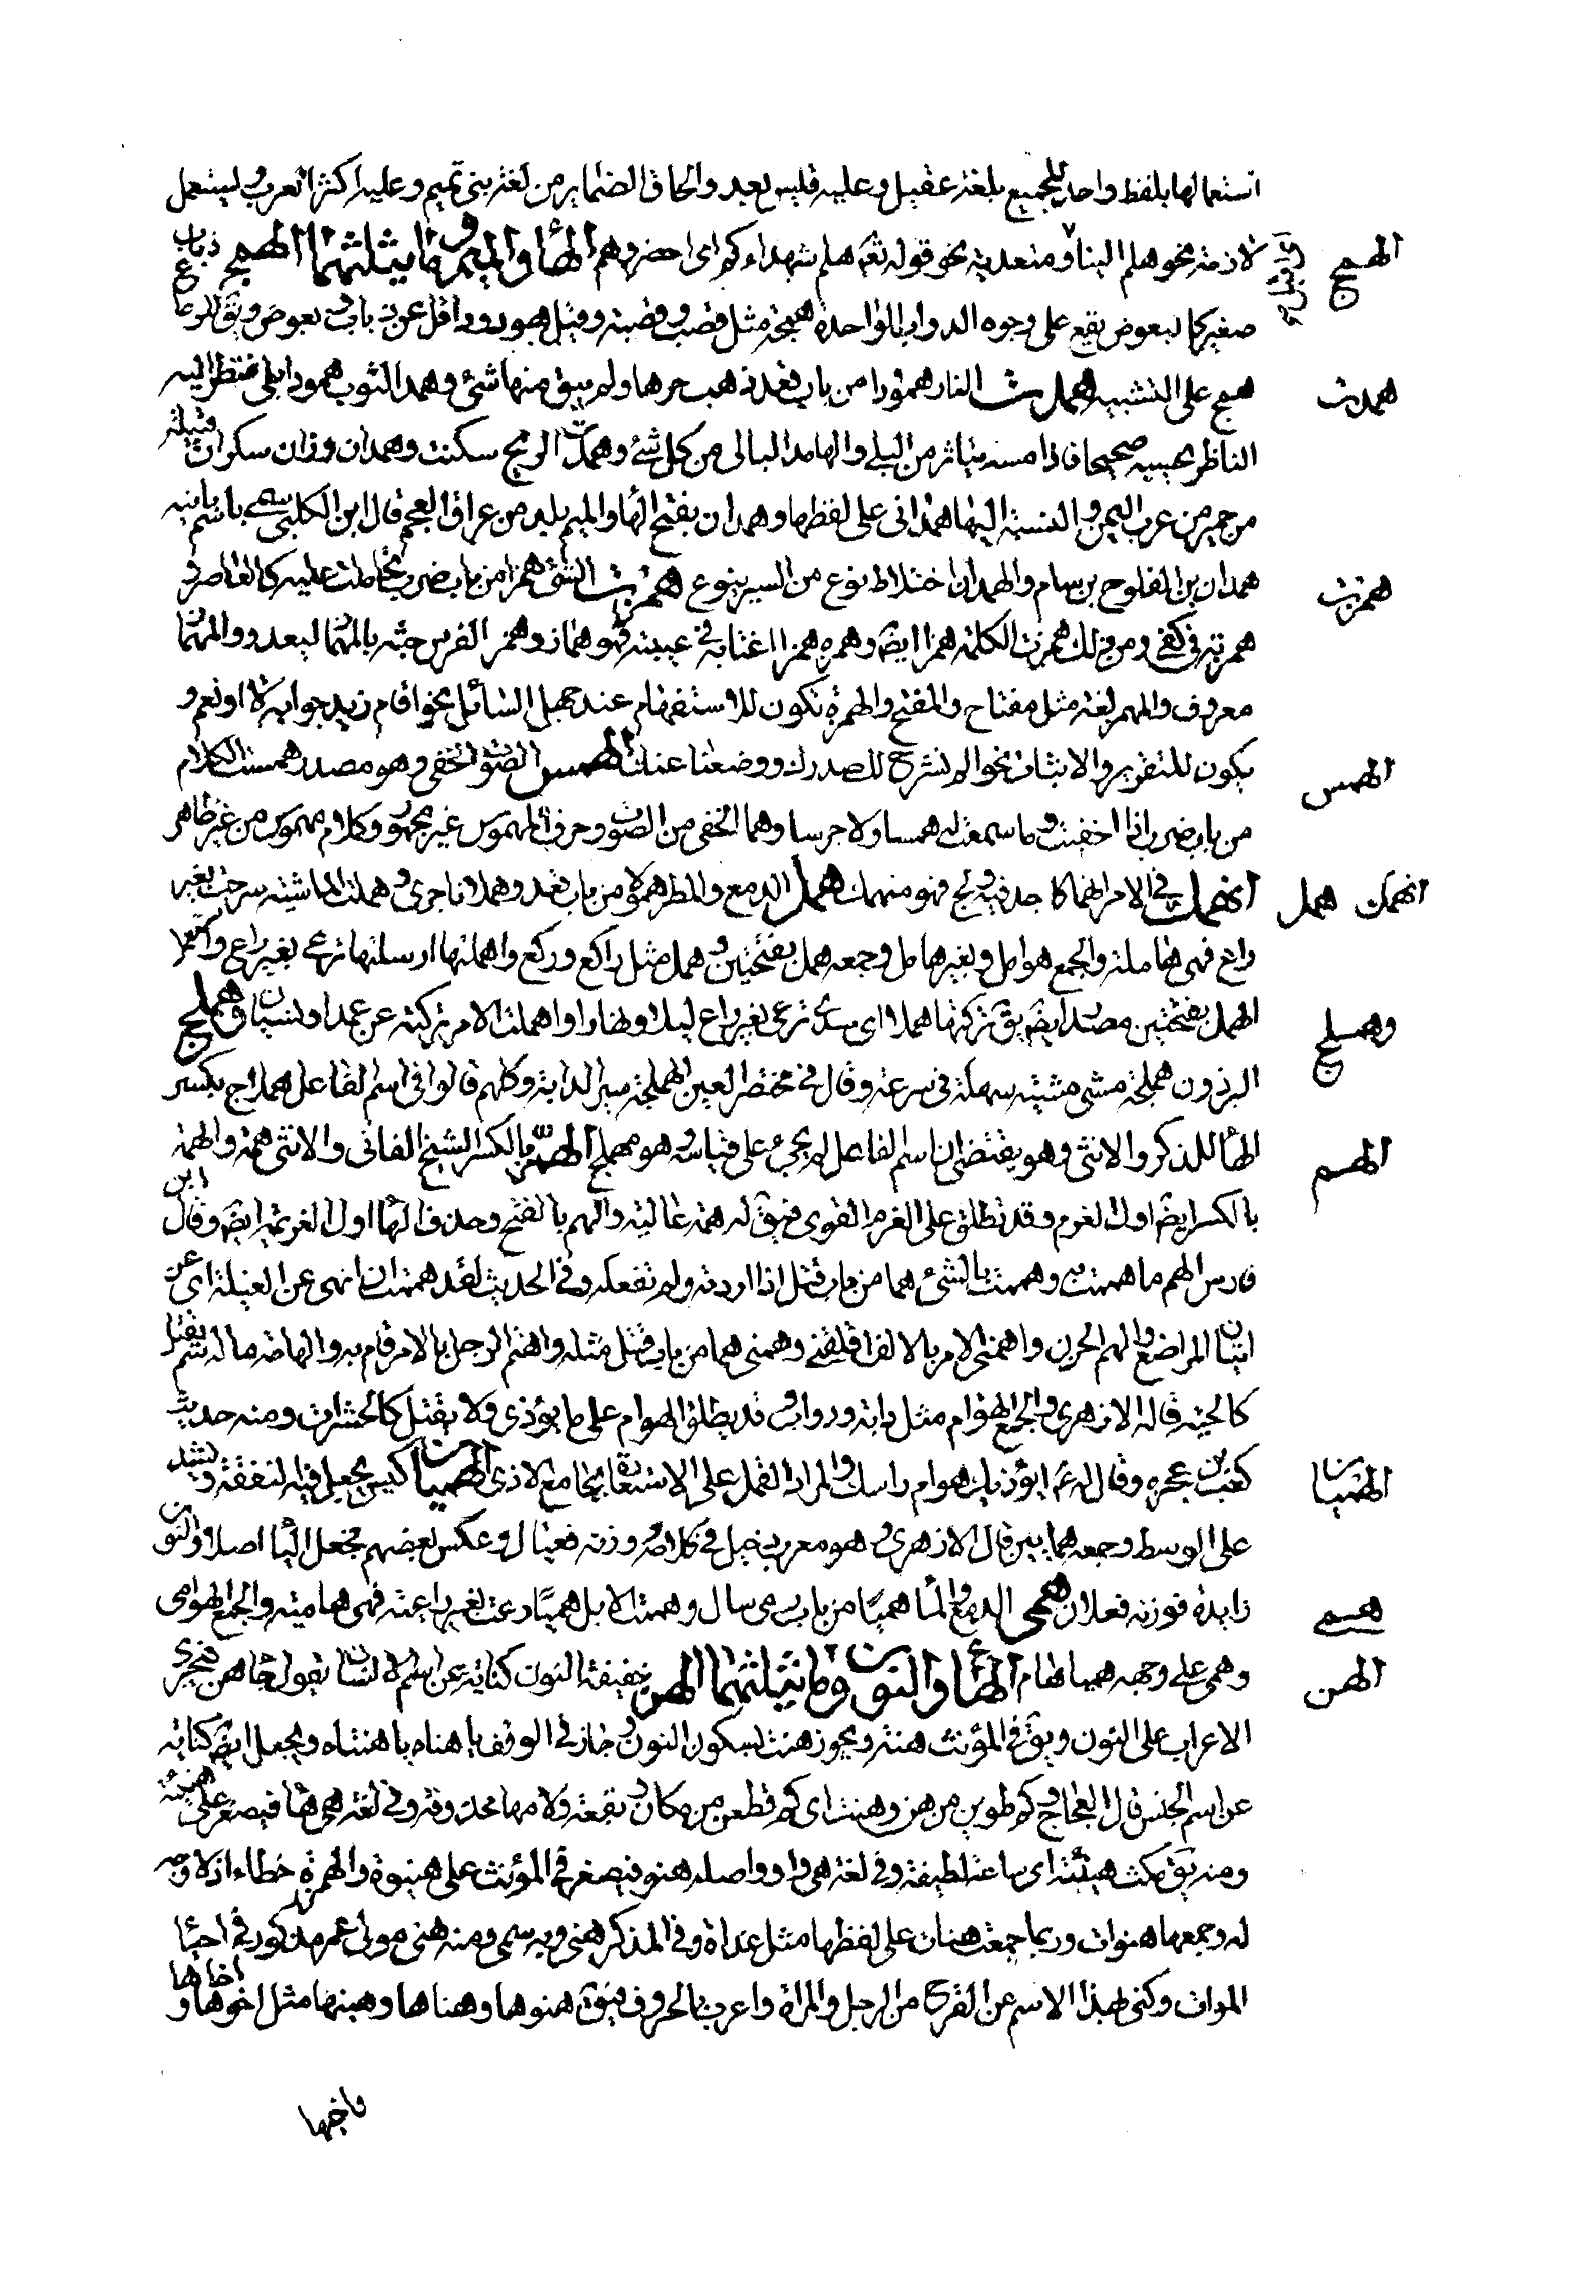 استعمالها بلفظ واحد للجميع بلغة عقيل وعليه قيس بعد والحاق الضماير من لغة بني تميم وعليه اكثر العرب ويستعمل
لازمة نحو هلم الينا ومتعدية نحو قوله تعم هلم شهداءكم اى احضروهم الهاء والميم وما يثلثهما الهمج ذباب
الهمج
صغير كالبعوض يقع على وجوه الدواب الواحدة همجة مثل قصب وقصبة وقيل هو دود عن ذباب وبعوض ويق للرعاع
همج على التشبيه همدت النار همودا من باب قعد ذهب حرها ولم يبق منها شئ وهمد الثوب همودا بلى فتظر اليه
همدت
الناظر يحسبه صحيحا فاذا مسه يتناثر من البلى والهامد البالى من كل شئ وهمدت الريح سكنت وهمدان وزان سكران قبيلة
من حمير من عرب اليمن والنسبة اليها همدانى على لفظها وهمدان بفتح الهاء والميم بلد من عراق العجم قال ابن الكلبى سمى باسم بانيه
همدان بن الفلوح بن سام والهمدان اختلاط نوع من السير بنوع همزت الشئ همزا من باب ضرب تحاملت عليه كالعاصر و
همزت
همزته فى كفى ومن ذلك همزت الكلمة همزا ايض وهمزه همزا اغتابه فى غيبته فهو هماز وهمز الفرس حثه بالمهماز ليعدو والمهماز
معروف والمهمز لغة مثل مفتاح والمفتح والهمزة تكون للاستفهام عند جهل السائل نحو اقام زيد جوابه لا او نعم و
يكون للتقرير والاثبات نحو الم نشرح لك صدرك ووضعنا عنك الهمس الصوت الخفى وهو مصدر همست الكلام
الهمس
من باب ضرب اذا اخفيته وما سمعت له همسا ولا جرسا وهما الخفى من الصوت وحرف مهموس غير مجهور وكلام مهموس من غير ظاهر
انهمك فى الامر انهماكا جد فيه ولج فهو منهمك همل الدمع والمطر همولا من باب قعد وهملانا جرى وهملت الماشية سرحت بغير
انهمك همل
راع فهى هاملة والجمع هوامل وبغير هامل وجمعه همل بفتحتين وهمل مثل راكع وركع واهملتها ارسلتها ترعى بغير راع واستعمل
الهمل بفتحتين مصدرا ايض يق تركتها هملا اى سدى ترعى بغير راع ليلا ونهارا واهملت الامر تركته عن عمد او نسيان وهملج
وهملج
البرذون هملجة مشى مشية سهلة فى سرعة وقال فى مختصر العين الهملجة سير الدابة وكلهم قالوا فى اسم الفاعل هملاج بكسر
الهاء للذكر والانثى وهو يقتضى ان اسم الفاعل لم يجئ على قياسه وهو مهملج الهم بالكسر الشيخ الفانى والانثى همة والهمة
الهم
بالكسر ايض اول العزم وقد تطلق على العزم القوى فيق له همة عالية والهم بالفتح وحذف الهاء اول العزيمة ايض وقال ابن
فارس الهم ما هممت به وهممت بالشئ هما من باب قتل اذا اردته ولم تفعله وفى الحديث لقد هممت ان انهى عن الغيلة اى عن
اتيان المراضع والهم الحزن واهمنى الامر بالالف اقلقنى وهمنى هما من باب قتل مثله واهتم الرجل بالامر قام به والهامة ما له سم يقتل
كالحية قاله الازهرى والجمع الهوام مثل دابة ودواب وقد يطلق الهوام على ما يؤذى ولا يقتل كالحشرات ومنه حديث
كعب بن عجره وقال له عم ايؤذيك هوام راسك والمراد القمل على الاستعارة بجامع الاذى الهميان كيس يجعل فيه النفقة ويشد
الهميان
على الوسط وجمعه همايين قال الازهرى وهو معرب دخيل فى كلامهم ووزنه فعيال وعكس بعضهم فجعل الياء اصلا والنون
زايدة فوزنه فعلان همى الدمع والماء هميا من باب رمى سال وهمت الابل هميا رعت بغير راع فهى هامية والجمع الهوامى
همى
وهمى على وجهه هميا هام الهاء والنون وما يثلثهما الهن خفيفة النون كناية عن اسم الانسان يقول جاء هن فتجرى
الهن
الاعراب على النون ويق فى المؤنث هنة ويجوز هنت بسكون النون وجاز فى الوقف ياهناه ياهنتاه ويجعل ايض كناية
عن اسم الجنس قال العجاج وكم طوين من هن وهنت اى كم قطعن من مكان وبقعة ولامها محذوفة وفى لغة هى هاء فيصغر على هنيهة
ومنه يق مكث هنيئة اى ساعة لطيفة وفى لغة هى واو واصله هنو فيصغر فى المؤنث على هنيوة والهمزة خطاء اذ لا وجه
له وجمعها هنوات وربما جمعت هنات على لفظها مثل عداة وفى المذكر هنى وبه سمى ومنه هنى مولى عمر مذكور فى احياء
الموات وكنى بهذا الاسم عن الفرج من الرجل والمراة واعرب بالحروف فيق هنوها وهناها وهنيها مثل اخوها واخاها و
واخيها